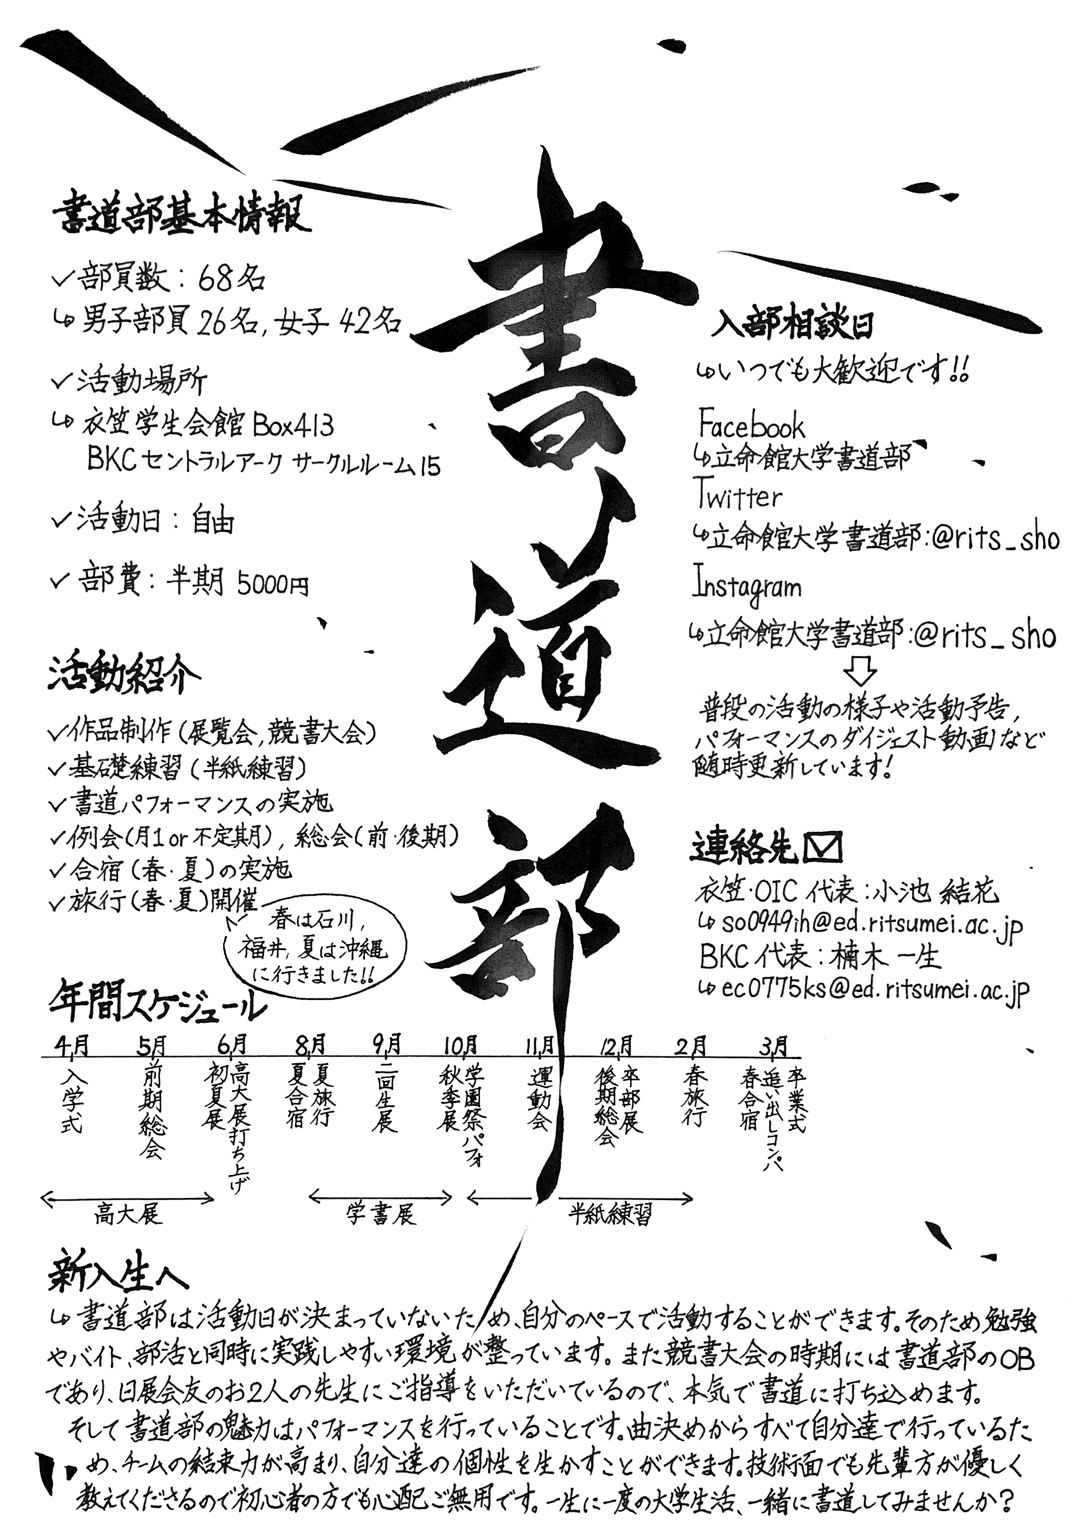 書道部
書道部基本情報
✓部員数：68名
↳男子部員26名,女子42名
✓活動場所
↳衣笠学生会館Box413
BKCセントラルアーク サークルルーム15
✓活動日：自由
✓部費：半期 5000円
活動紹介
✓作品制作(展覧会,競書大会)
✓基礎練習(半紙練習)
✓書道パフォーマンスの実施
✓例会(月1or不定期),総会(前・後期)
✓合宿(春・夏)の実施
✓旅行(春・夏)開催
春は石川,
福井,夏は沖縄
に行きました!!
入部相談日
↳いつでも大歓迎です!!
Facebook
↳立命館大学書道部
Twitter
↳立命館大学書道部:@rits_sho
Instagram
↳立命館大学書道部:@rits_sho
普段の活動の様子や活動予告,
パフォーマンスのダイジェスト動画など
随時更新しています!
連絡先
衣笠・OIC 代表：小池 結花
↳so0949ih@ed.ritsumei.ac.jp
BKC 代表：楠木 一生
↳ec0775ks@ed.ritsumei.ac.jp
年間スケジュール
4月 5月 6月 8月 9月 10月 11月 12月 2月 3月
入学式
前期総会
高大展打ち上げ
初夏展
夏旅行
夏合宿
二回生展
学園祭パフォ
秋季展
運動会
卒部展
後期総会
春旅行
卒業式
追い出しコンパ
春合宿
高大展 学書展 半紙練習
新入生へ
↳書道部は活動日が決まっていないため、自分のペースで活動することができます。そのため勉強
やバイト、部活と同時に実践しやすい環境が整っています。また競書大会の時期には書道部のOB
であり、日展会友のお2人の先生にご指導をいただいているので、本気で書道に打ち込めます。
そして書道部の魅力はパフォーマンスを行っていることです。曲決めからすべて自分達で行っているた
め、チームの結束力が高まり、自分達の個性を生かすことができます。技術面でも先輩方が優しく
教えてくださるので初心者の方でも心配ご無用です。一生に一度の大学生活、一緒に書道してみませんか？